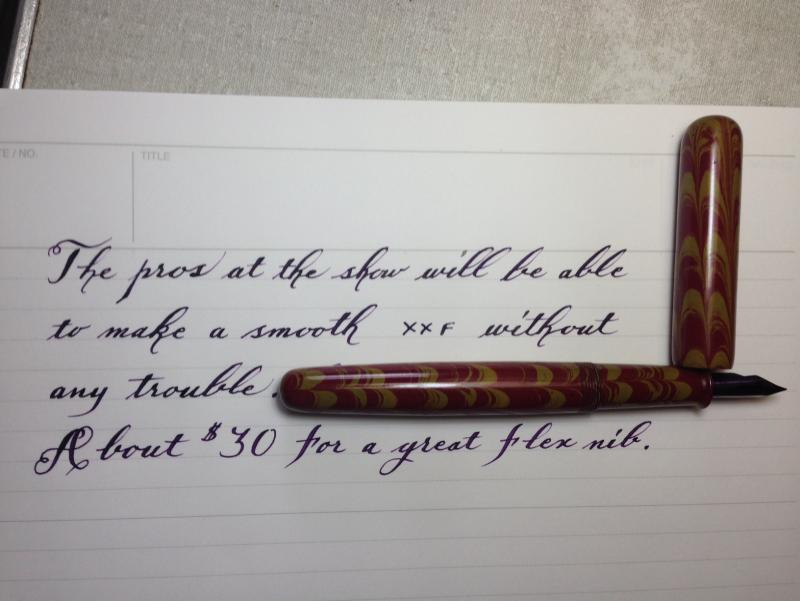 TE / NO.
TITLE
The pros at the show will be able
to make a smooth xxF without
any trouble.
About $30 for a great flex nib.